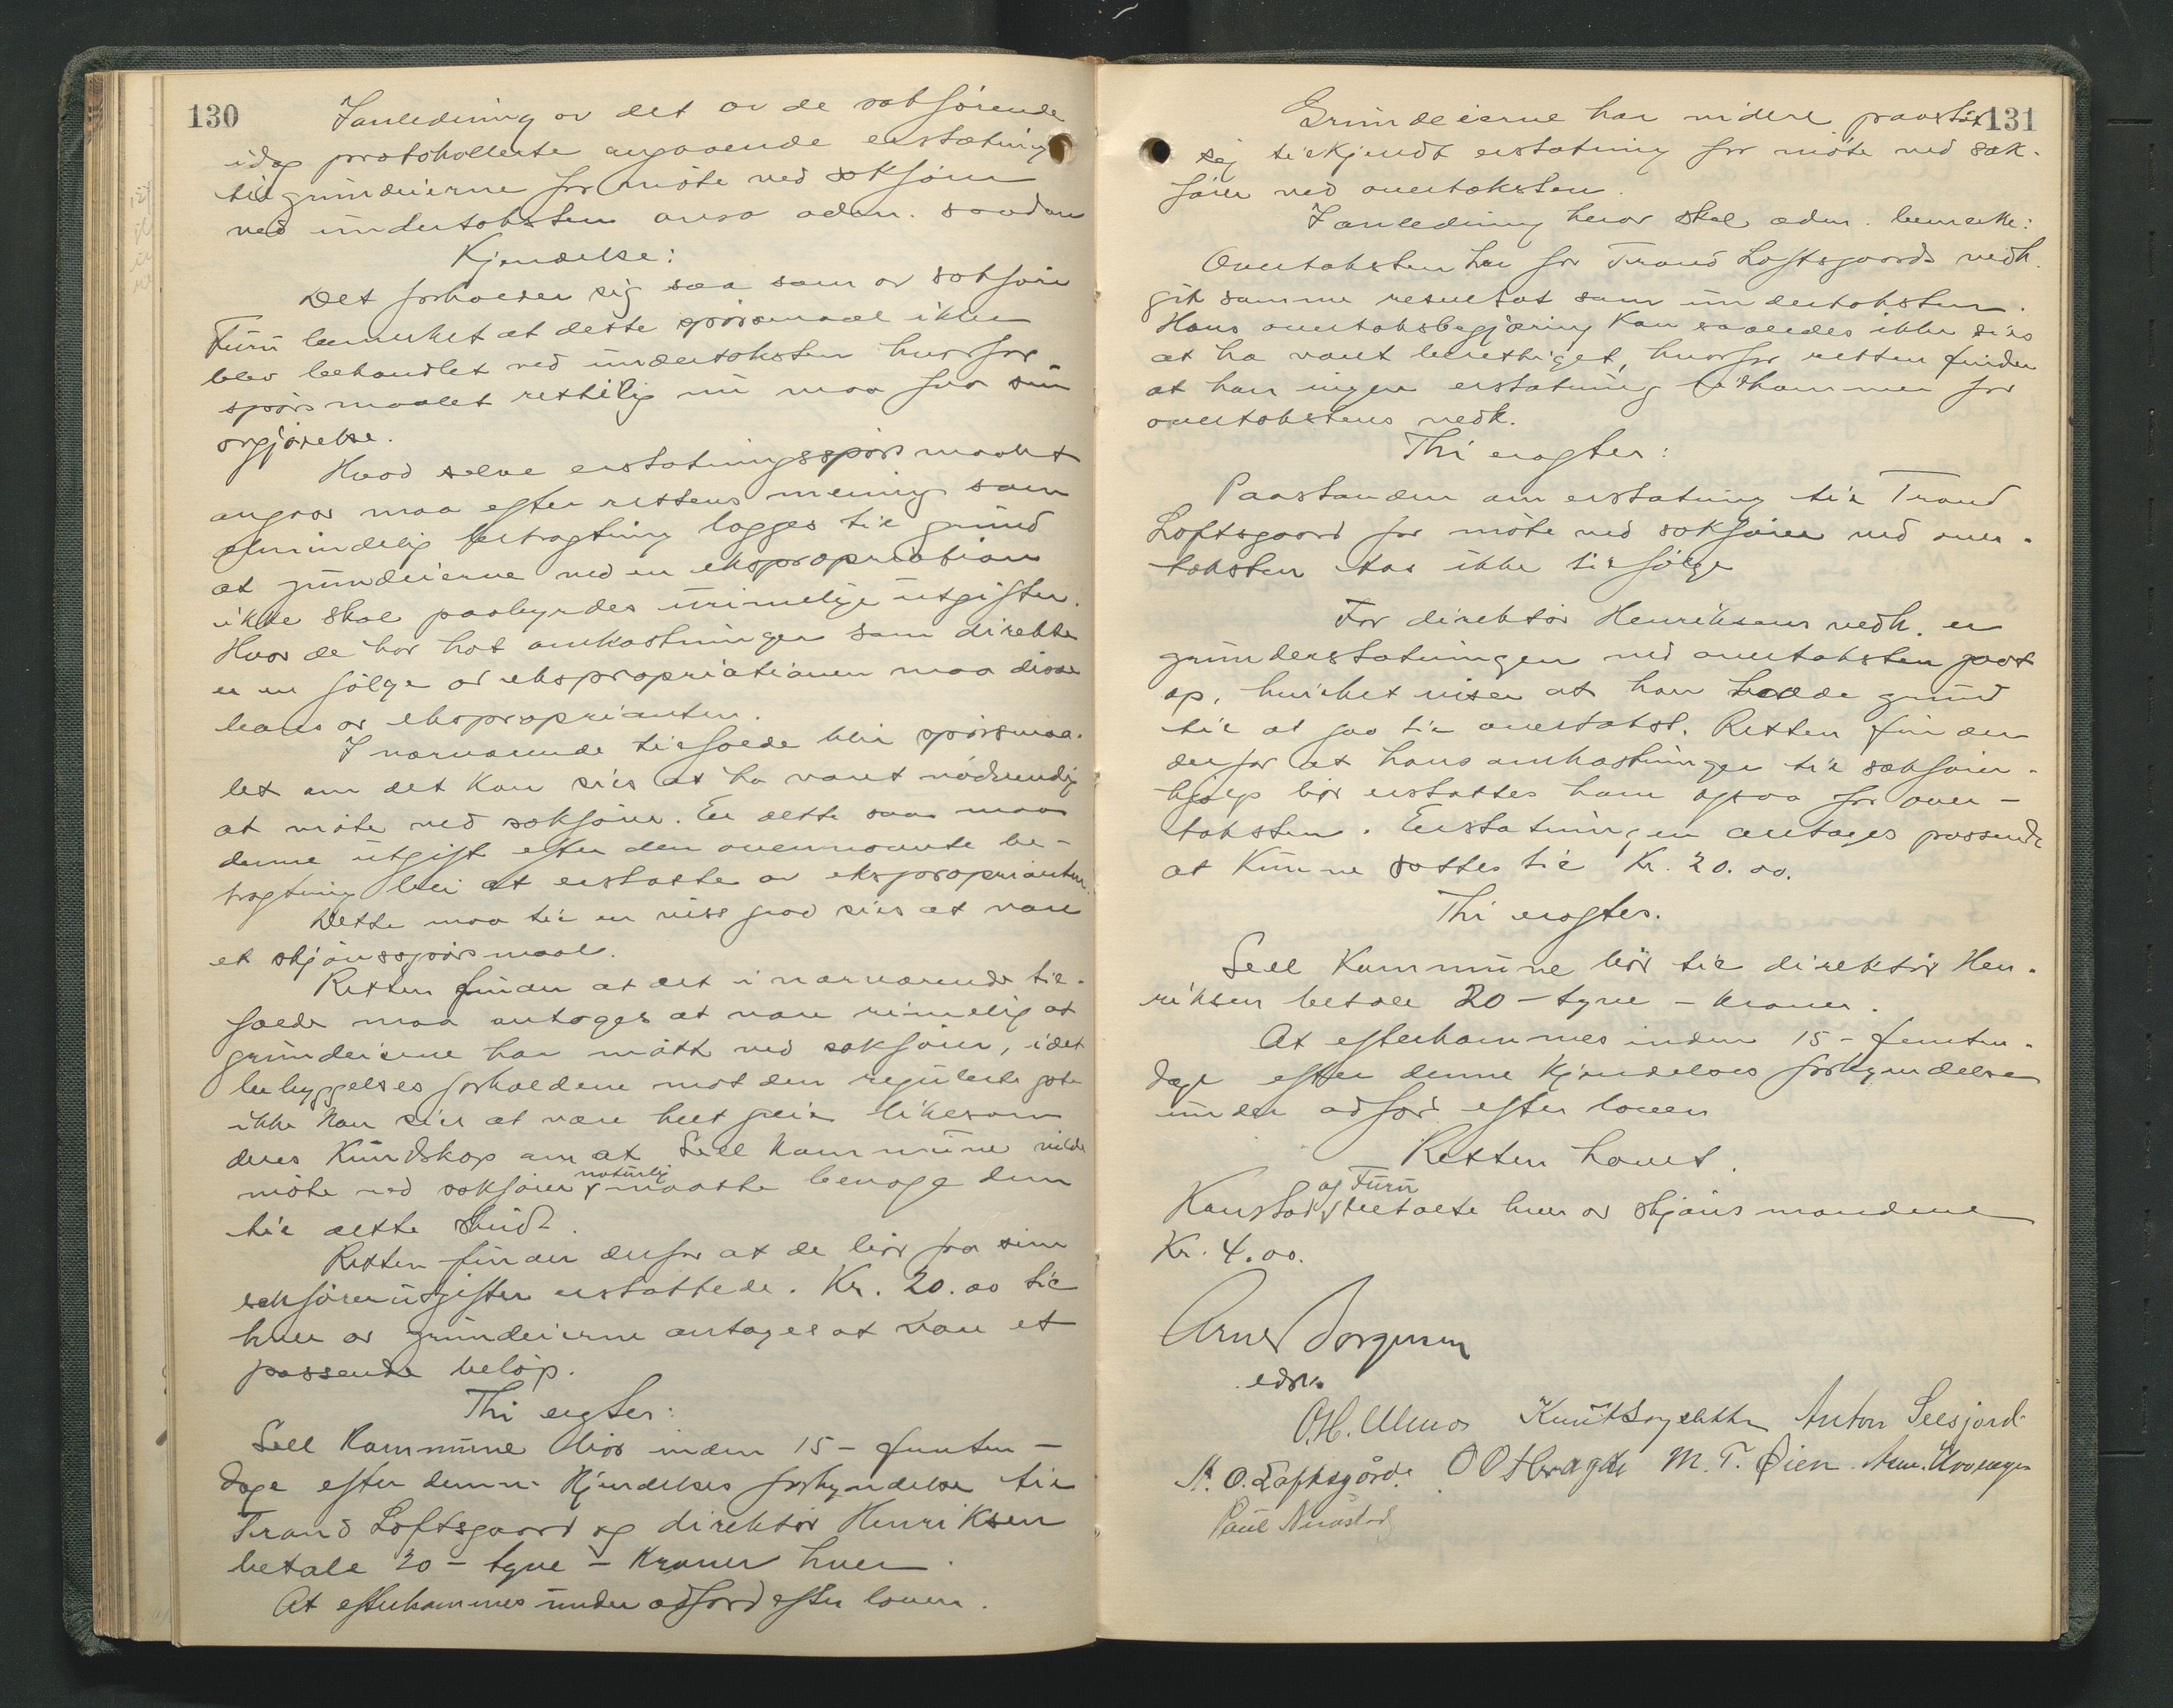 130
I anledning av det av de sakförende
idag protokollerte angaaende erstatning
til grundeierne for möte ved sakförer
ved undertaksten avsa adm. saadan
Kjendelse:
Det forholder sig saa som av sakförer
Furu bemerket at dette spörsmaal ikke
blev behandlet ved undertaksten hvorfor
spörsmaalet rettelig nu maa faa sin
avgjörelse.
Hvad selve erstatningsspörsmaalet
angaar maa efter rettens mening som
almindelig betragtning lægges til grund
at grundeierne ved en ekspropriation
ikke skal paabyrdes urimelige utgifter.
Hvor de har hat omkostninger som direkte
er en fölge av ekspropriationen maa disse
bæres av eksproprianten.
I nærværende tilfælde blir spörsmaa-
let om det kan sies at ha været nödvendig
at möte ved sakförer. Er dette saa maa
denne utgift efter den ovennævnte be-
tragtning bli at erstatte av eksproprianten.
Dette maa til en viss grad sies at være
et skjönsspörsmaal.
Retten finder at det i nærværende til-
fælde maa antages at være rimelig at
grundeierne har mött ved sakförer, idet
bebyggelsesforholdene mot den regulerte gate
ikke kan sies at være helt greie likesom
deres kundskap om at Sell kommune vilde
möte ved sakförer naturlig maatte bevæge dem
til dette skridt.
Retten finder derfor at de bör faa sine
sakförerutgifter erstattede. Kr. 20.00 til
hver av grundeierne antages at være et
passende belöp.
Thi eragtes:
Sell Kommune bör inden 15 - femten -
dage efter denne kjendelses forkyndelse til
Trond Loftsgaard og direktör Henriksen
betale 20 - tyve - kroner hver.
At efterkommes under adfærd efter loven.
131
Grundeierne har videre paastaat
sig tilkjendt erstatning for möte ved sak-
förer ved overtaksten.
I anledning herav skal adm. bemerke:
Overtaksten har for Trond Loftsgaards vedk.
git samme resultat som undertaksten.
Hans overtaksbegjæring kan saaledes ikke sies
at ha været berettiget, hvorfor retten finder
at han ingen erstatning tilkommer for
overtakstens vedk.
Thi eragtes:
Paastanden om erstatning til Trond
Loftsgaard for möte ved sakförer ved over-
taksten tas ikke til fölge
For direktör Henriksens vedk. er
grunderstatningen ved overtaksten gaat
op, hvilket viser at han hadde grund
til at gaa til overtakst. Retten finder
derfor at hans omkostninger til sakförer-
hjælp bör erstattes ham ogsaa for over-
taksten. Erstatningen antages passende
at kunne sættes til Kr. 20.00.
Thi eragtes.
Sell Kommune bör til direktör Hen-
riksen betale 20 - tyve - kroner.
At efterkommes inden 15 - femten -
dage efter denne kjendelses forkyndelse
under adfærd efter loven
Retten hævet.
Kanstad og Furu betalte hver av skjönsmændene
Kr. 4.00.
Arne Jorgensen
edsv.
O.H. Ulmo Anton Selsjord
O O M. T. Øien
Paul